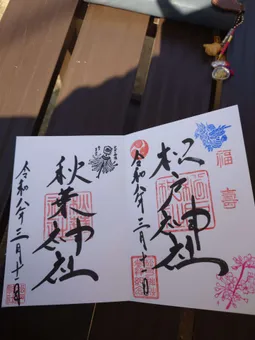 福喜
松戸神社
令和八年三月十一日
秋葉神社
令和八年三月十一日